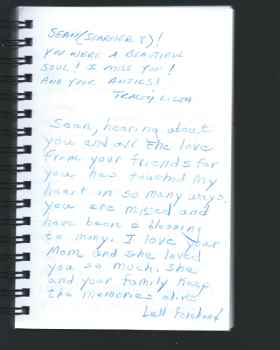 SEAN (SCARNER Y)!
YOU WERE A BEAUTIFUL
SOUL! I MISS YOU!
AND YOUR ANTICS!
TRACIY
Sean, hearing about
you and all the love
from your friends for
you has touched my
heart in so many ways.
you are missed and
have been a blessing
to many. I love your
Mom and she loved
you so much. She
and your family keep
the memories alive.